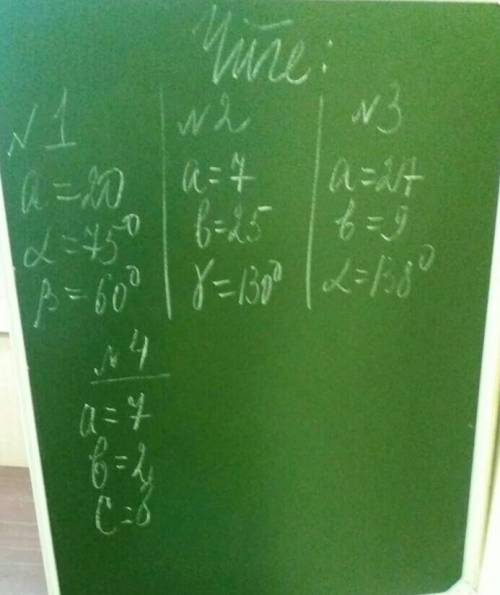 №1
a=20
α=75°
β=60°
№2
a=7
b=25
γ=130°
№3
a=27
b=9
α=138°
№4
a=7
b=2
c=8